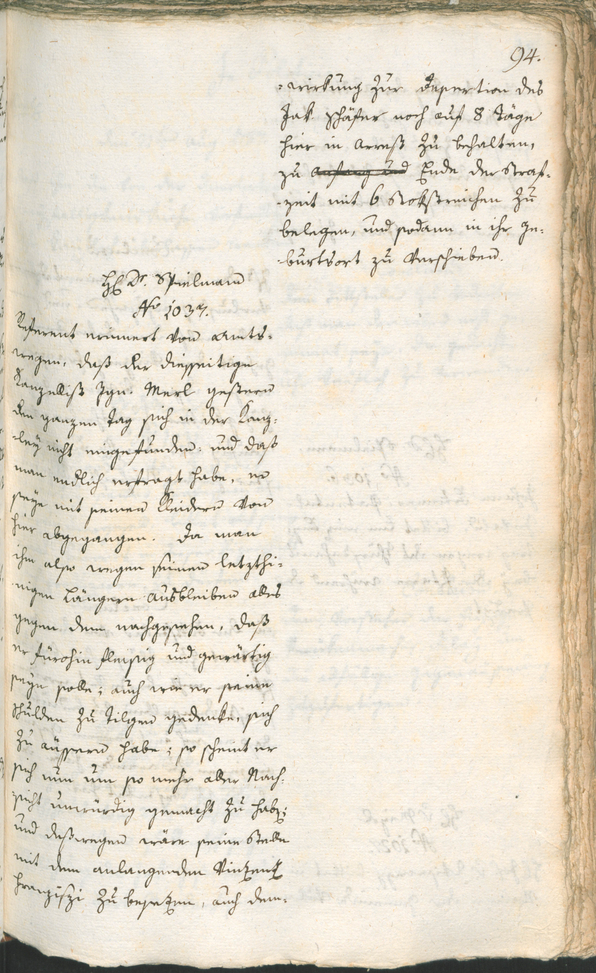 94.
-wirkung zur Deportion des
Jak Schäfer noch auf 8 Täge
hier in Arrest zu behalten,
zu Anfang und Ende der Straf-
-zeit mit 6 Stokstreichen zu
belegen, und sodann in ihr Ge-
-burtsort zu verschieben.
HH. Dr. Spielmann
No. 1037.
Referent erinnert von Amts-
wegen, daß der diesseitige
Kanzellist Ign. Merl gestern
den ganzen Tag sich in der Kanz-
-ley nicht eingefunden, und daß
man endlich erfragt habe, er
seye mit seinen Kleidern von
hier abgegangen. Da man
ihm also wegen seinen letzthi-
-nigen längern Ausbleiben alles
gegen dem nachgesehen, daß
er fürohin fleissig und gewärtig
seyn solle; auch wie er seine
Schulden zu tilgen gedenke, sich
zu äussern habe; so scheint er
sich nun um so mehr aller Nach-
sicht unwürdig gemacht zu haben;
und deßwegen wäre seine Stelle
mit dem anlangenden Vinzenz
Franziszi zu besezen, auch dem-